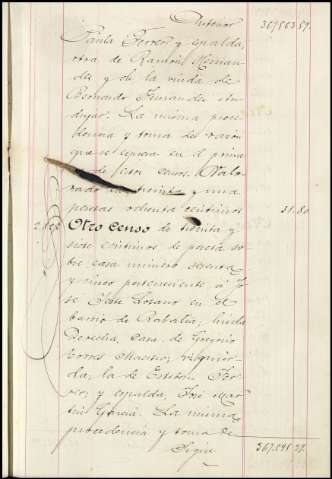 Anterior 367563.57
Santa Ferrer y espalda,
otra de Ramón Hernan-
dez y de la viuda de
Bernardo Fernandez An-
dujar. La misma proce-
dencia y toma de razon
que se expresa en el prime-
de esos censos. Valo-
rado en treinta y una
pesetas ochenta centimos 31.80
Otro censo de treinta y
siete centimos de peseta so-
bre casa numero sesenta
y cinco perteneciente á Jo-
se Perez Lozano en el
barrio de Rabalia, linda
derecha, casa de Gregorio
Torres Macho, izquier-
da, la de Esteban Fer-
rer, y espalda, José Mar-
tin Garcia. La misma
procedencia y toma de
Sigue 367.595.37.